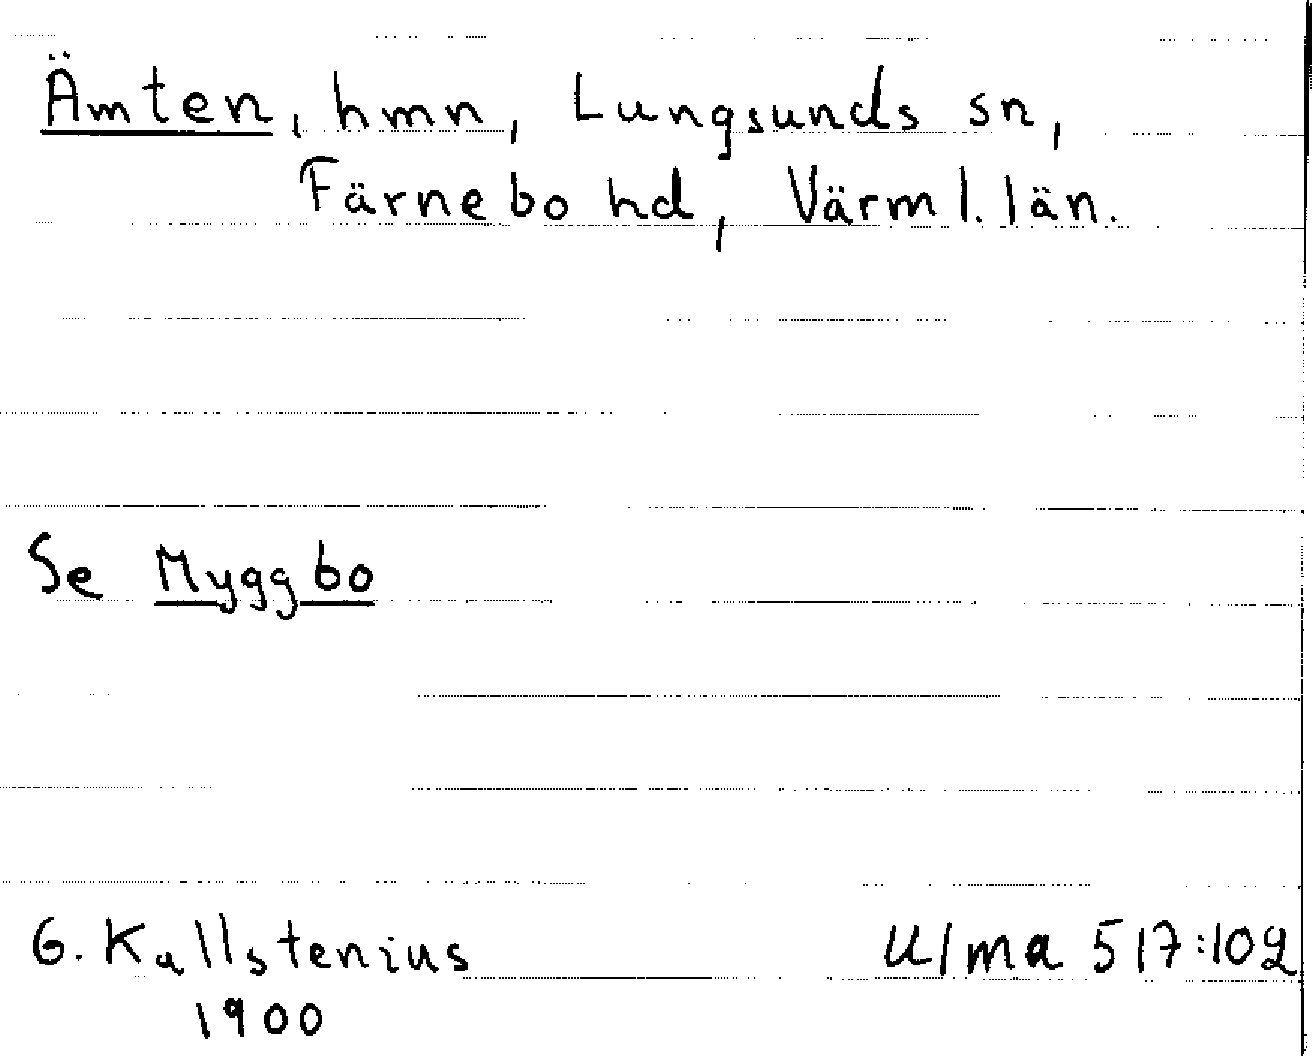 Ämten, hmn, Lungsunds sn,
Färnebo hd, Värml. län.
Se Myggbo
G. Kallstenius Ulma 517:102
1900